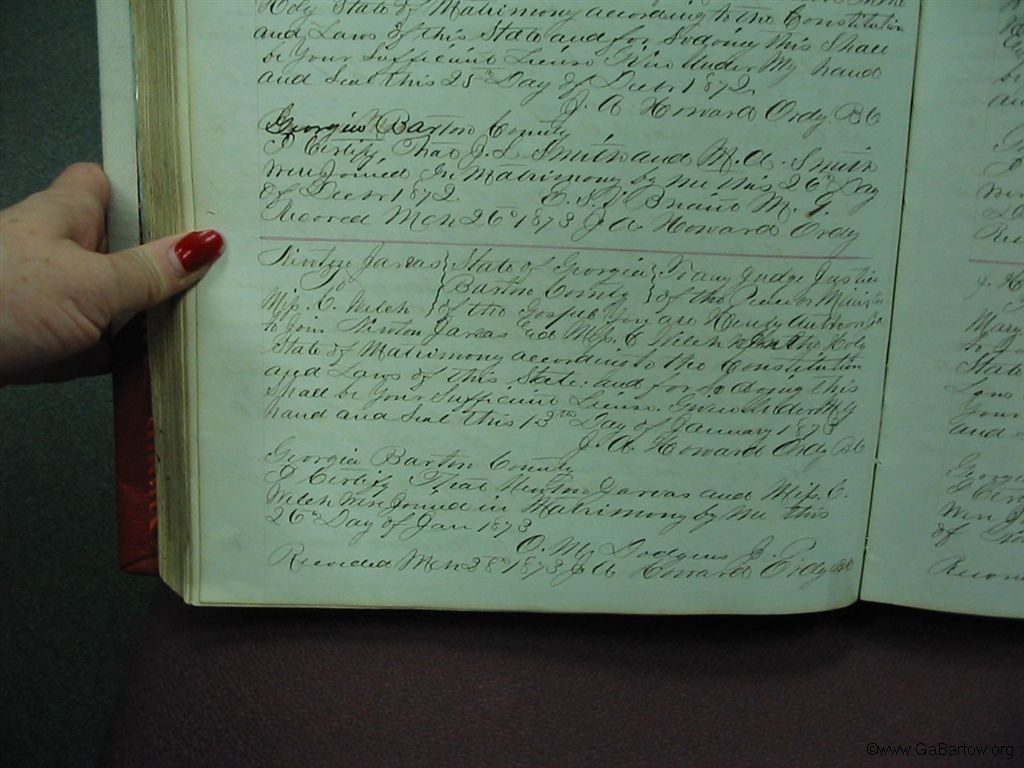 Holy State of Matrimony according to the Constitution
and Laws of this State and for So doing this Shall
be your Sufficient License Given Under My hand
and Seal this 25th Day of Decbr 1872
J. A. Howard Ordy. B C
Georgia Bartow County
I Certify That J. L. Smith and M. A. Smith
Were Joined In Matrimony by me this 26th Day
of Decbr 1872. Bryant M. G.
Recored Mch 26th 1873 J A Howard Ordy
Newton Jarvas State of Georgia To any Judge Justice
Bartow County of the Peace or Minister
Miss. C. Welch of the Gospel You are Hereby Authorized
to join Newton Jarvas and Miss. C Welch in the Holy
State of Matrimony according to the Constitution
and Laws of this State: and for So doing this
Shall be Your Sufficient License. Given Under My
hand and Seal this 13th Day of January 1873
J. A. Howard Ordy B C
Georgia Bartow County
I Certify That Newton Jarvas and Miss. C.
Welch Were Joined in Matrimony by Me this
26th Day of Jan 1873
O. M. Dodgins J. P.
Recorded Mch 28th 1873 J A Howard Ordy B C
Mary
State
Laws
Your
and
Georgia
I Cery
Were J
of
Recor
©www.GaBartow.org